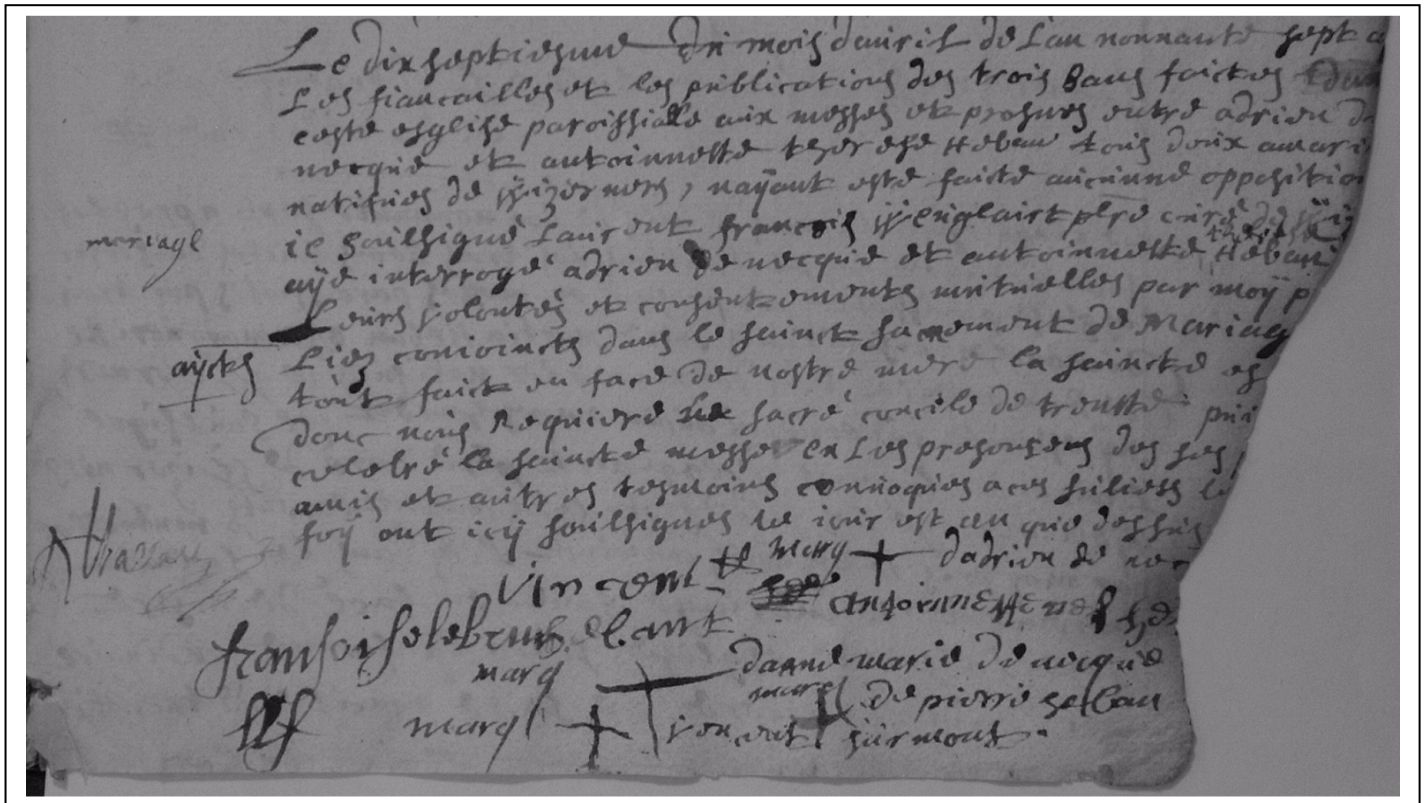 Le dixseptiesme du mois dauril de Lan nonnante sept a
Les fiancailles et les publications des trois Bans faictes
ceste esglise paroissialle aux messes et prosnes entre adrien d
necque et antoinnette therese Heban tous deux amari
natifues de Wizernes, nayant esté faicte aucunne oppositio
ie soussigné Laurent francois Wenglairt pbre curé de
therese
aÿe interrogé adrien de necque et antoinnette Heban
mariage
Leurs volontés et consentements mutuelles par moÿ p
Liez conioincts dans le sainct sacrement de Mariag
aÿctes
tout faict en face de nostre mere la saincte es
donc nous Requiere le sacré concile de trentte puis
celebré la saincte messe en Les presences des ses
amis et autres tesmoins conuoqués a ces
foÿ ont icÿ soussignés le iour est an que dessus
Vincent marq dadrien de nec
antoinnette
fransois
marq danne marie de necque
marq de pierre heban
marq surmont